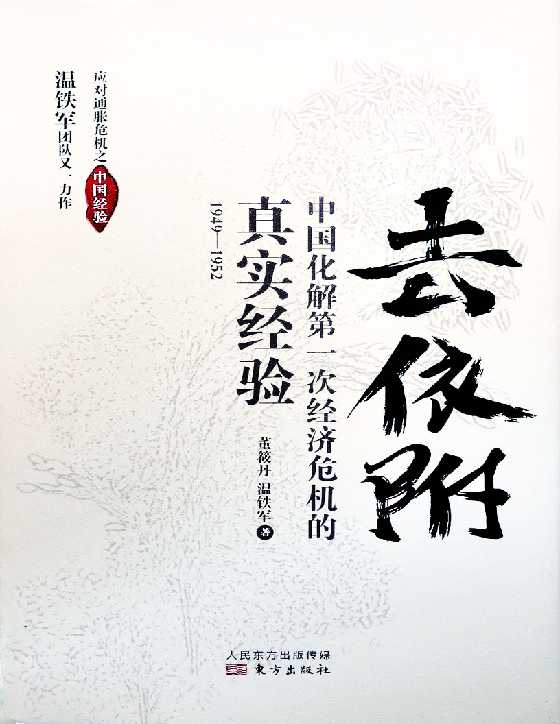 去依附
中国化解第一次经济危机的
真实经验
1949—1952
董筱丹 温铁军 著
应对通胀危机之
中国经验
温铁军团队又一力作
人民东方出版传媒
东方出版社